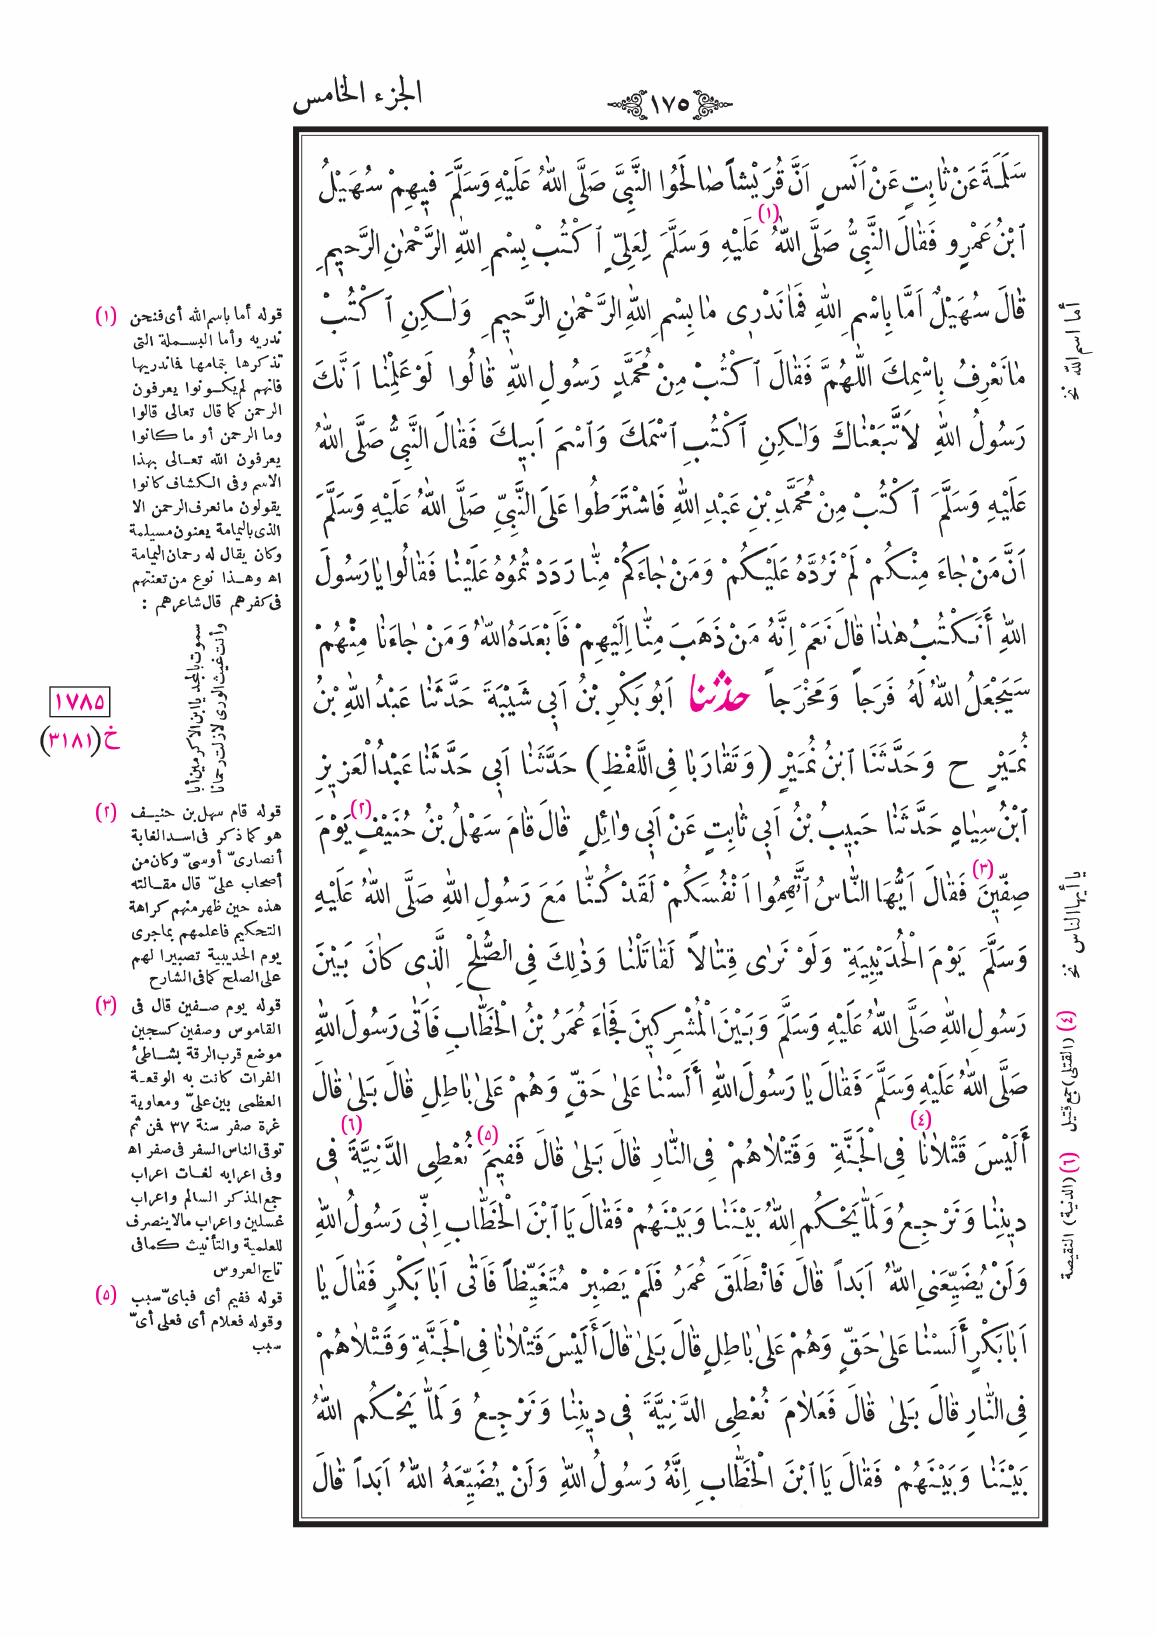 ١٧٥
الجزء الخامس
سَلَمَةَ عَنْ ثَابِتٍ عَنْ اَنَسٍ اَنَّ قُرَيْشاً صَالَحُوا النَّبِىَّ صَلَّى اللهُ عَلَيْهِ وَسَلَّمَ فيهِمْ سُهَيْلُ
ابْنُ عَمْرٍو فَقَالَ النَّبِىُّ صَلَّى اللهُ عَلَيْهِ وَسَلَّمَ لِعَلِىٍّ اكْتُبْ بِسْمِ اللهِ الرَّحْمٰنِ الرَّحيمِ
قَالَ سُهَيْلٌ اَمَّا بِاسْمِ (١) اللهِ فَمَا نَدْرى مَا بِسْمِ اللهِ الرَّحْمٰنِ الرَّحيمِ وَلٰكِنِ اكْتُبْ
مَا نَعْرِفُ بِاسْمِكَ اللّٰهُمَّ فَقَالَ اكْتُبْ مِنْ مُحَمَّدٍ رَسُولِ اللهِ قَالُوا لَوْ عَلِمْنَا اَنَّكَ
رَسُولُ اللهِ لَاتَّبَعْنَاكَ وَلٰكِنِ اكْتُبِ اسْمَكَ وَاسْمَ اَبيكَ فَقَالَ النَّبِىُّ صَلَّى اللهُ
عَلَيْهِ وَسَلَّمَ اكْتُبْ مِنْ مُحَمَّدِ بْنِ عَبْدِ اللهِ فَاشْتَرَطُوا عَلَى النَّبِىِّ صَلَّى اللهُ عَلَيْهِ وَسَلَّمَ
اَنَّ مَنْ جَاءَ مِنْكُمْ لَمْ نَرُدَّهُ عَلَيْكُمْ وَمَنْ جَاءَكُمْ مِنَّا رَدَدْتُمُوهُ عَلَيْنَا فَقَالُوا يَا رَسُولَ
اللهِ أَنَكْتُبُ هٰذَا قَالَ نَعَمْ اِنَّهُ مَنْ ذَهَبَ مِنَّا اِلَيْهِمْ فَاَبْعَدَهُ اللهُ وَمَنْ جَاءَنَا مِنْهُمْ
سَيَجْعَلُ اللهُ لَهُ فَرَجاً وَمَخْرَجاً حدثنا اَبُو بَكْرِ بْنُ اَبى شَيْبَةَ حَدَّثَنَا عَبْدُ اللهِ بْنُ
نُمَيْرٍ ح وَحَدَّثَنَا ابْنُ نُمَيْرٍ (وَتَقَارَبَا فِى اللَّفْظِ) حَدَّثَنَا اَبى حَدَّثَنَا عَبْدُ الْعَزيزِ
ابْنُ سِيَاهٍ حَدَّثَنَا حَبيبُ بْنُ اَبى ثَابِتٍ عَنْ اَبى وَائِلٍ قَالَ قَامَ سَهْلُ بْنُ حُنَيْفٍ (٢) يَوْمَ
صِفّينَ (٣) فَقَالَ اَيُّهَا النَّاسُ اتَّهِمُوا اَنْفُسَكُمْ لَقَدْ كُنَّا مَعَ رَسُولِ اللهِ صَلَّى اللهُ عَلَيْهِ
وَسَلَّمَ يَوْمَ الْحُدَيْبِيَةِ وَلَوْ نَرٰى قِتَالاً لَقَاتَلْنَا وَذٰلِكَ فِى الصُّلْحِ الَّذى كَانَ بَيْنَ
رَسُولِ اللهِ صَلَّى اللهُ عَلَيْهِ وَسَلَّمَ وَبَيْنَ الْمُشْرِكينَ فَجَاءَ عُمَرُ بْنُ الْخَطَّابِ فَاَتٰى رَسُولَ اللهِ
صَلَّى اللهُ عَلَيْهِ وَسَلَّمَ فَقَالَ يَا رَسُولَ اللهِ أَلَسْنَا عَلىٰ حَقٍّ وَهُمْ عَلىٰ بَاطِلٍ قَالَ بَلىٰ قَالَ
أَلَيْسَ قَتْلَانَا (٤) فِى الْجَنَّةِ وَقَتْلَاهُمْ فِى النَّارِ قَالَ بَلىٰ قَالَ فَفيمَ (٥) نُعْطِى الدَّنِيَّةَ (٦) فى
دينِنَا وَنَرْجِعُ وَلَمَّا يَحْكُمِ اللهُ بَيْنَنَا وَبَيْنَهُمْ فَقَالَ يَا ابْنَ الْخَطَّابِ اِنّى رَسُولُ اللهِ
وَلَنْ يُضَيِّعَنِى اللهُ اَبَداً قَالَ فَانْطَلَقَ عُمَرُ فَلَمْ يَصْبِرْ مُتَغَيِّظاً فَاَتٰى اَبَا بَكْرٍ فَقَالَ يَا
اَبَا بَكْرٍ أَلَسْنَا عَلىٰ حَقٍّ وَهُمْ عَلىٰ بَاطِلٍ قَالَ بَلىٰ قَالَ أَلَيْسَ قَتْلَانَا فِى الْجَنَّةِ وَقَتْلَاهُمْ
فِى النَّارِ قَالَ بَلىٰ قَالَ فَعَلَامَ نُعْطِى الدَّنِيَّةَ فى دينِنَا وَنَرْجِعُ وَلَمَّا يَحْكُمِ اللهُ
بَيْنَنَا وَبَيْنَهُمْ فَقَالَ يَا ابْنَ الْخَطَّابِ اِنَّهُ رَسُولُ اللهِ وَلَنْ يُضَيِّعَهُ اللهُ اَبَداً قَالَ
أما اسم الله نخ
يا أيها الناس نخ
(٤) (القتلى) جمع قتيل
(٦) (الدنية) النقيصة
(١) قوله أما باسم الله أى فنحن
ندريه وأما البسملة التى
تذكرها بتمامها فما ندريها
فانهم لم يكونوا يعرفون
الرحمن كما قال تعالى قالوا
وما الرحمن أو ما كانوا
يعرفون الله تعالى بهذا
الاسم وفى الكشاف كانوا
يقولون ما نعرف الرحمن الا
الذى باليمامة يعنون مسيلمة
وكان يقال له رحمان اليمامة
اه وهذا نوع من تعنتهم
فى كفرهم قال شاعرهم :
سموت بالمجد يا ابن الاكرمين أبا
وأنت غيث الورى لا زلت رحمانا
١٧٨٥
خ (٣١٨١)
(٢) قوله قام سهل بن حنيف
هو كما ذكر فى اسد الغابة
أنصارىّ أوسىّ وكان من
أصحاب علىّ قال مقالته
هذه حين ظهر منهم كراهة
التحكيم فاعلمهم بما جرى
يوم الحديبية تصبيرا لهم
على الصلح كما فى الشارح
(٣) قوله يوم صفين قال فى
القاموس وصفين كسجين
موضع قرب الرقة بشاطئ
الفرات كانت به الوقعة
العظمى بين علىّ ومعاوية
غرة صفر سنة ٣٧ فمن ثم
توقى الناس السفر فى صفر اه
وفى اعرابه لغات اعراب
جمع المذكر السالم واعراب
غسلين واعراب ما لا ينصرف
للعلمية والتأنيث كما فى
تاج العروس
(٥) قوله ففيم أى فبأىّ سبب
وقوله فعلام أى فعلى أىّ
سبب